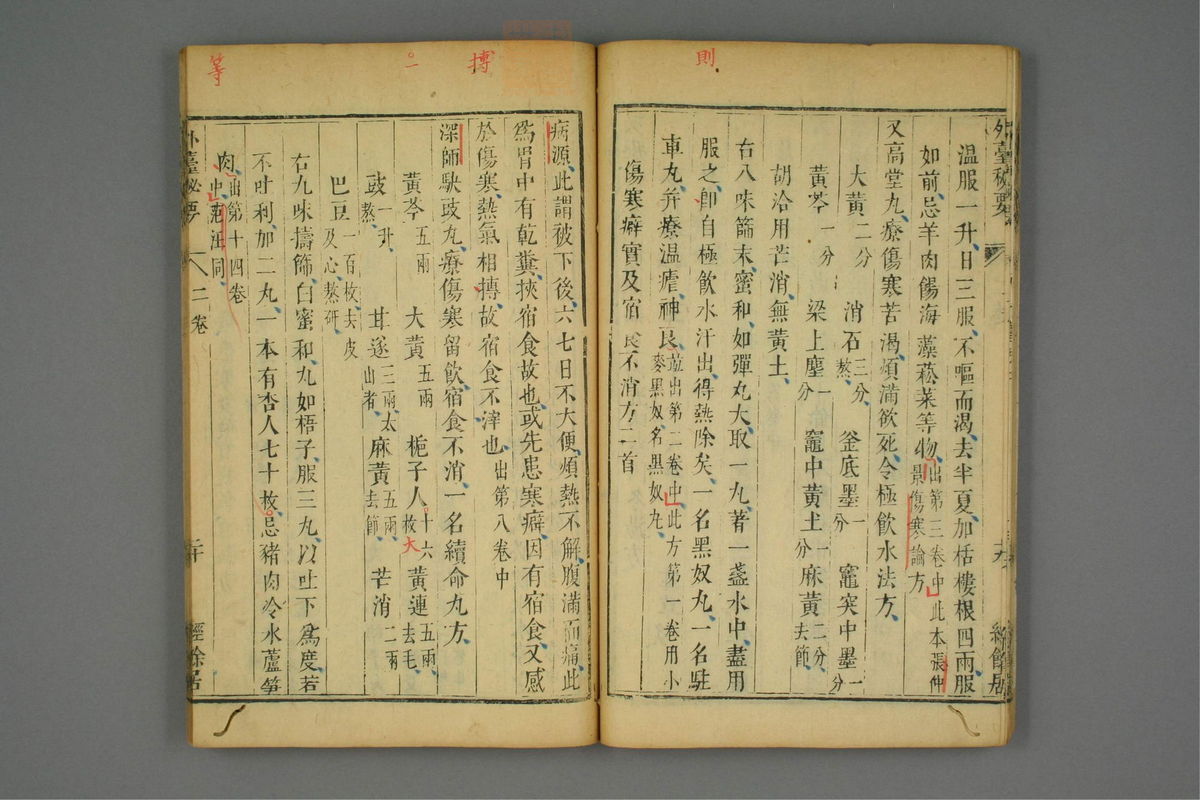 則
外臺秘要
經餘居
溫服一升日三服不嘔而渴去半夏加栝樓根四兩服
如前忌羊肉餳海藻菘菜等物出第三卷中此本張仲景傷寒論方
又高堂丸療傷寒苦渴煩滿欲死令極飲水法方
大黃二分 消石三分熬 釜底墨一分 竈突中墨一分
黃芩一分 梁上塵一分 竈中黃土一分 麻黃二分去節
胡洽用芒消無黃土
右八味篩末蜜和如彈丸大取一丸著一盞水中盡用
服之卽自極飲水汗出得熱除矣一名黑奴丸一名駐
車丸并療溫瘧神良並出第二卷中此方第一卷用小麥黑奴名黑奴丸
傷寒癖實及宿食不消方二首
搏
一
等
病源此謂被下後六七日不大便煩熱不解腹滿而痛此
爲胃中有乾糞挾宿食故也或先患寒癖因有宿食又感
於傷寒熱氣相摶故宿食不消也出第八卷中
深師駃豉丸療傷寒留飲宿食不消一名續命丸方
黃芩五兩 大黃五兩 梔子人十六枚大 黃連五兩去毛
豉一升熬 甘遂三兩太山者 麻黃五兩去節 芒消二兩
巴豆一百枚去皮及心熬研
右九味擣篩白蜜和丸如梧子服三丸以吐下爲度若
不吐利加二丸一本有杏人七十枚忌豬肉冷水蘆筍
肉出第十四卷中范汪同
外臺秘要
二卷
二十
經餘居